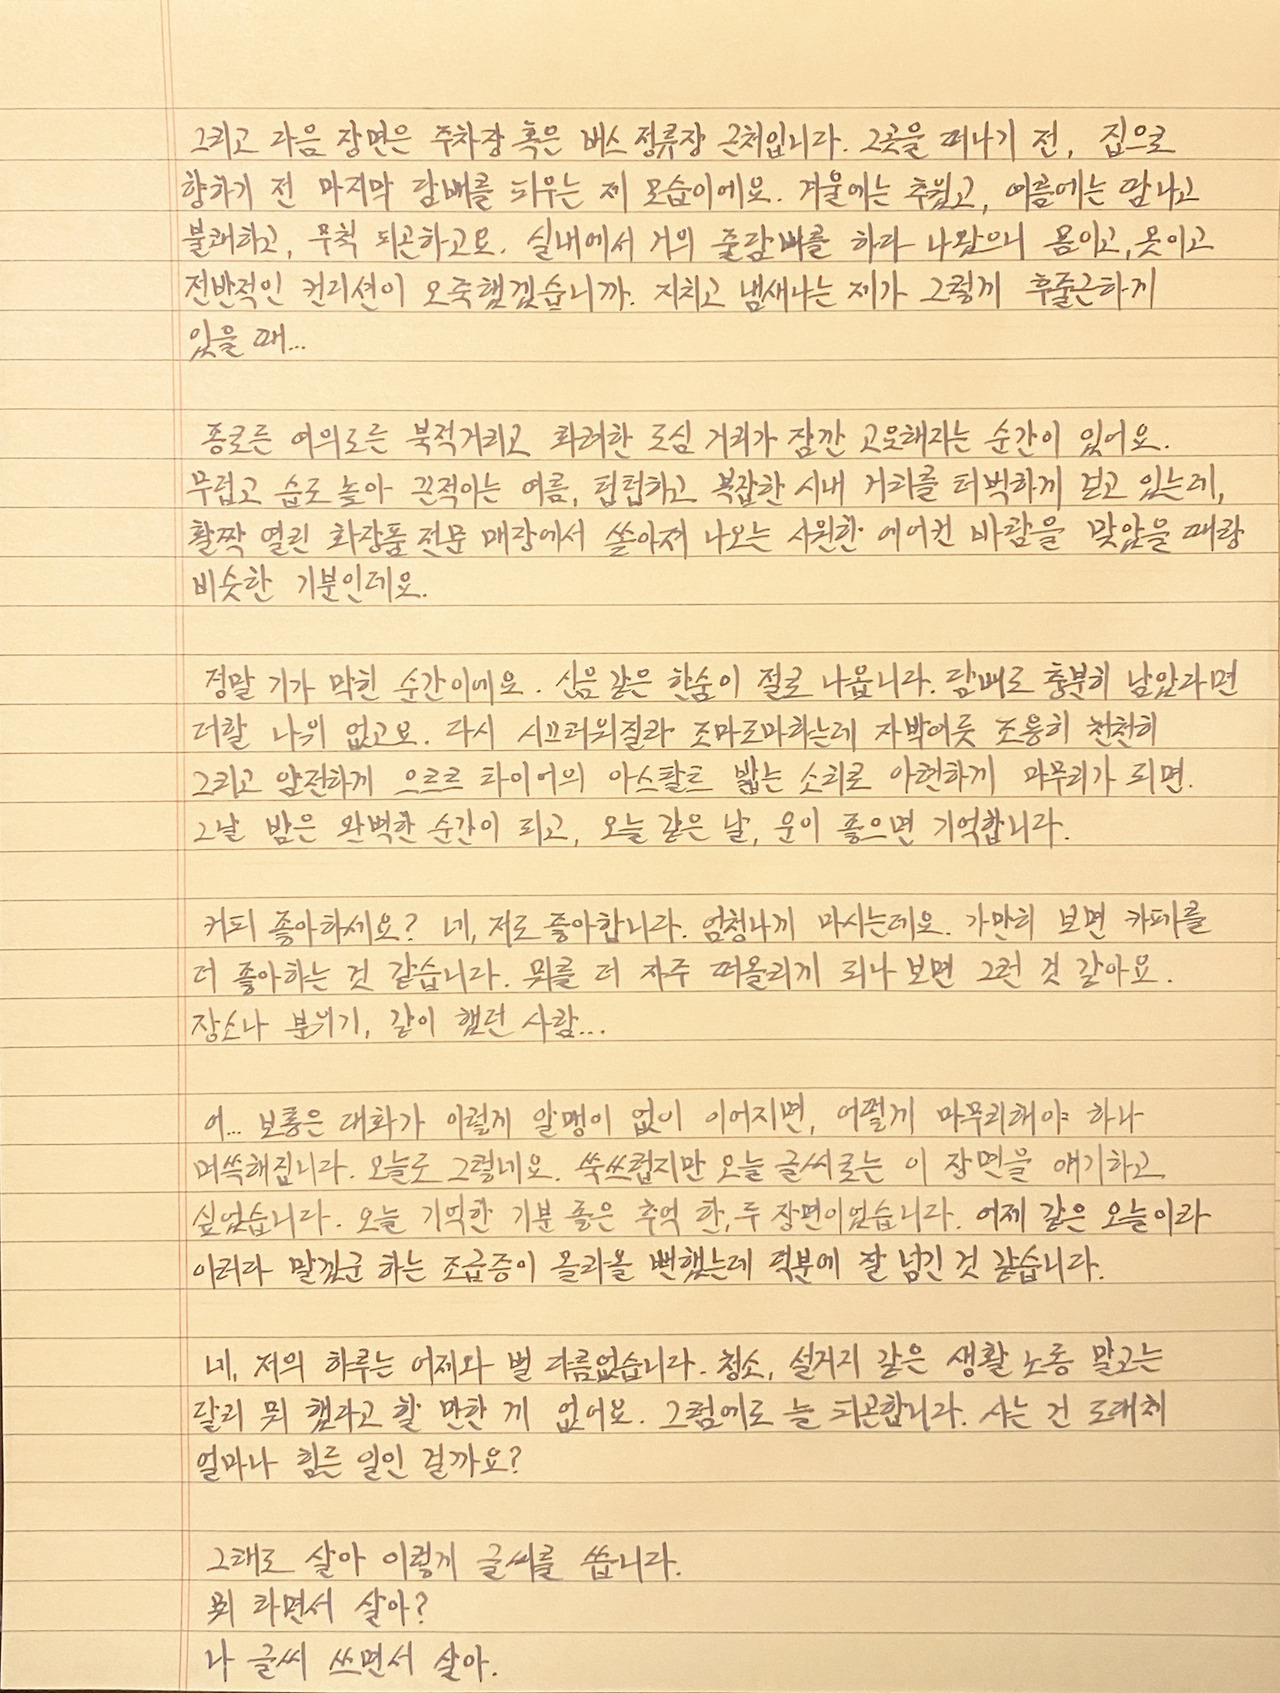 그리고 다음 장면은 주차장 혹은 버스 정류장 근처입니다. 그곳을 떠나기 전, 집으로
향하기 전 마지막 담배를 피우는 제 모습이에요. 겨울에는 추웠고, 여름에는 땀나고
불쾌하고, 무척 피곤하고요. 실내에서 거의 줄담배를 하다 나왔으니 몸이고, 옷이고
전반적인 컨디션이 오죽했겠습니까. 지치고 냄새나는 제가 그렇게 후줄근하게
있을 때...
종로든 여의도든 북적거리고 화려한 도심 거리가 잠깐 고요해지는 순간이 있어요.
무덥고 습도 높아 끈적이는 여름, 텁텁하고 복잡한 시내 거리를 터벅하게 걷고 있는데,
활짝 열린 화장품 전문 매장에서 쏟아져 나오는 시원한 에어컨 바람을 맞았을 때랑
비슷한 기분인데요.
정말 기가 막힌 순간이에요. 신음 같은 한숨이 절로 나옵니다. 담배도 충분히 남았다면
더할 나위 없고요. 다시 시끄러워질라 조마조마하는데 자박이듯 조용히 천천히
그리고 얌전하게 으르르 타이어의 아스팔트 밟는 소리로 아련하게 마무리가 되면.
그날 밤은 완벽한 순간이 되고, 오늘 같은 날, 운이 좋으면 기억합니다.
커피 좋아하세요? 네, 저도 좋아합니다. 엄청나게 마시는데요. 가만히 보면 카페를
더 좋아하는 것 같습니다. 뭐를 더 자주 떠올리게 되나 보면 그런 것 같아요.
장소나 분위기, 같이 했던 사람...
어... 보통은 대화가 이렇게 알맹이 없이 이어지면, 어떻게 마무리해야 하나
머쓱해집니다. 오늘도 그렇네요. 쑥쓰럽지만 오늘 글씨로는 이 장면을 얘기하고
싶었습니다. 오늘 기억한 기분 좋은 추억 한, 두 장면이었습니다. 어제 같은 오늘이라
이러다 말겠군 하는 조급증이 몰려올 뻔했는데 덕분에 잘 넘긴 것 같습니다.
네, 저의 하루는 어제와 별 다름없습니다. 청소, 설거지 같은 생활 노동 말고는
달리 뭐 했다고 할 만한 게 없어요. 그럼에도 늘 피곤합니다. 사는 건 도대체
얼마나 힘든 일인 걸까요?
그래도 살아 이렇게 글씨를 씁니다.
뭐 하면서 살아?
나 글씨 쓰면서 살아.